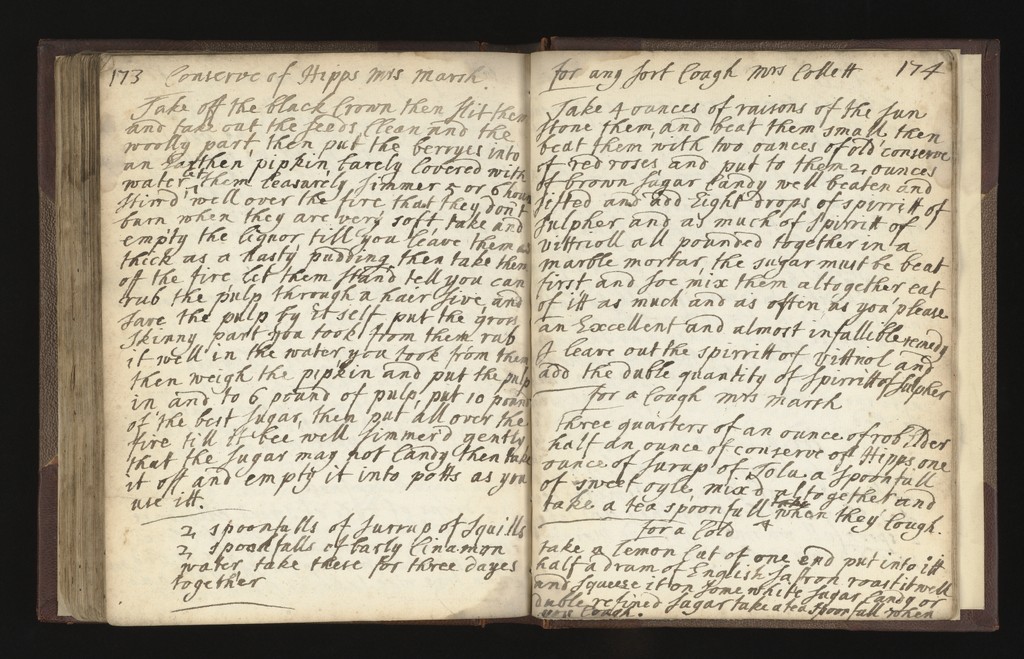 173 Conserve of Hipps mrs marsh
Take off the black Crown then slit them
and take out the seeds, Clean and the
woolly part, then put the berryes into
an Earthen pipkin, barely Covered with
water, let them leasurely simmer 5 or 6 hours
stirrd well over the fire that they don't
burn when they are very soft take and
empty the liquor till you leave them as
thick as a hasty pudding, then take them
off the fire, let them stand tell you can
rub the pulp through a hair sive, and
save the pulp by it self, put the gross
skinny part you took from them rub
it well in the water, you took from them
then weigh the pipkin and put the pulp
in and to 6 pound of pulp, put 10 pound
of the best sugar, then put all over the
fire till itt bee well simmer'd gently
that the sugar may not Candy then take
it off and empty it into potts as you
use itt.
2 spoonfulls of surrup of squills
2 spoonfulls of barly Cinamon
water, take these for three dayes
together
for any sort Cough mrs Collett 174
Take 4 ounces of raisons of the sun
stone them, and beat them small, then
beat them with two ounces of old conserve
of red roses, and put to them 2 ounces
of brown sugar Candy well beaten and
sifted and add Eight drops of spirritt of
sulpher and as much of spirritt of
vittrioll all pounded together in a
marble mortar, the sugar must be beat
first and soe mix them altogether eat
of itt as much and as often as you please
an Excellent and almost infallible remedy
I leave out the spirritt of vittriol and
add the duble quantity of spirritt of sulpher
for a Cough mrs marsh
Three quarters of an ounce of rob Elder
half an ounce of conserve of Hipps, one
ounce of surup of Tolu a spoonfull
of sweet oyle, mix'd altogether, and
take a tea spoonfull when they Cough.
for a Cold
take a Lemon Cut of one end put into itt
half a dram of English safron roast it well
and squeese it on some white sugar Candy or
duble refined sugar take a tea spoonfull when
you Cough.